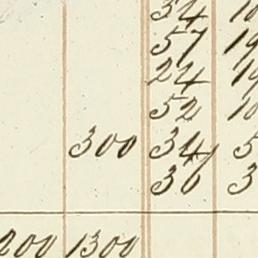 34 10
57 19
24 19
52 10
300 34 5
36 3
200 1300